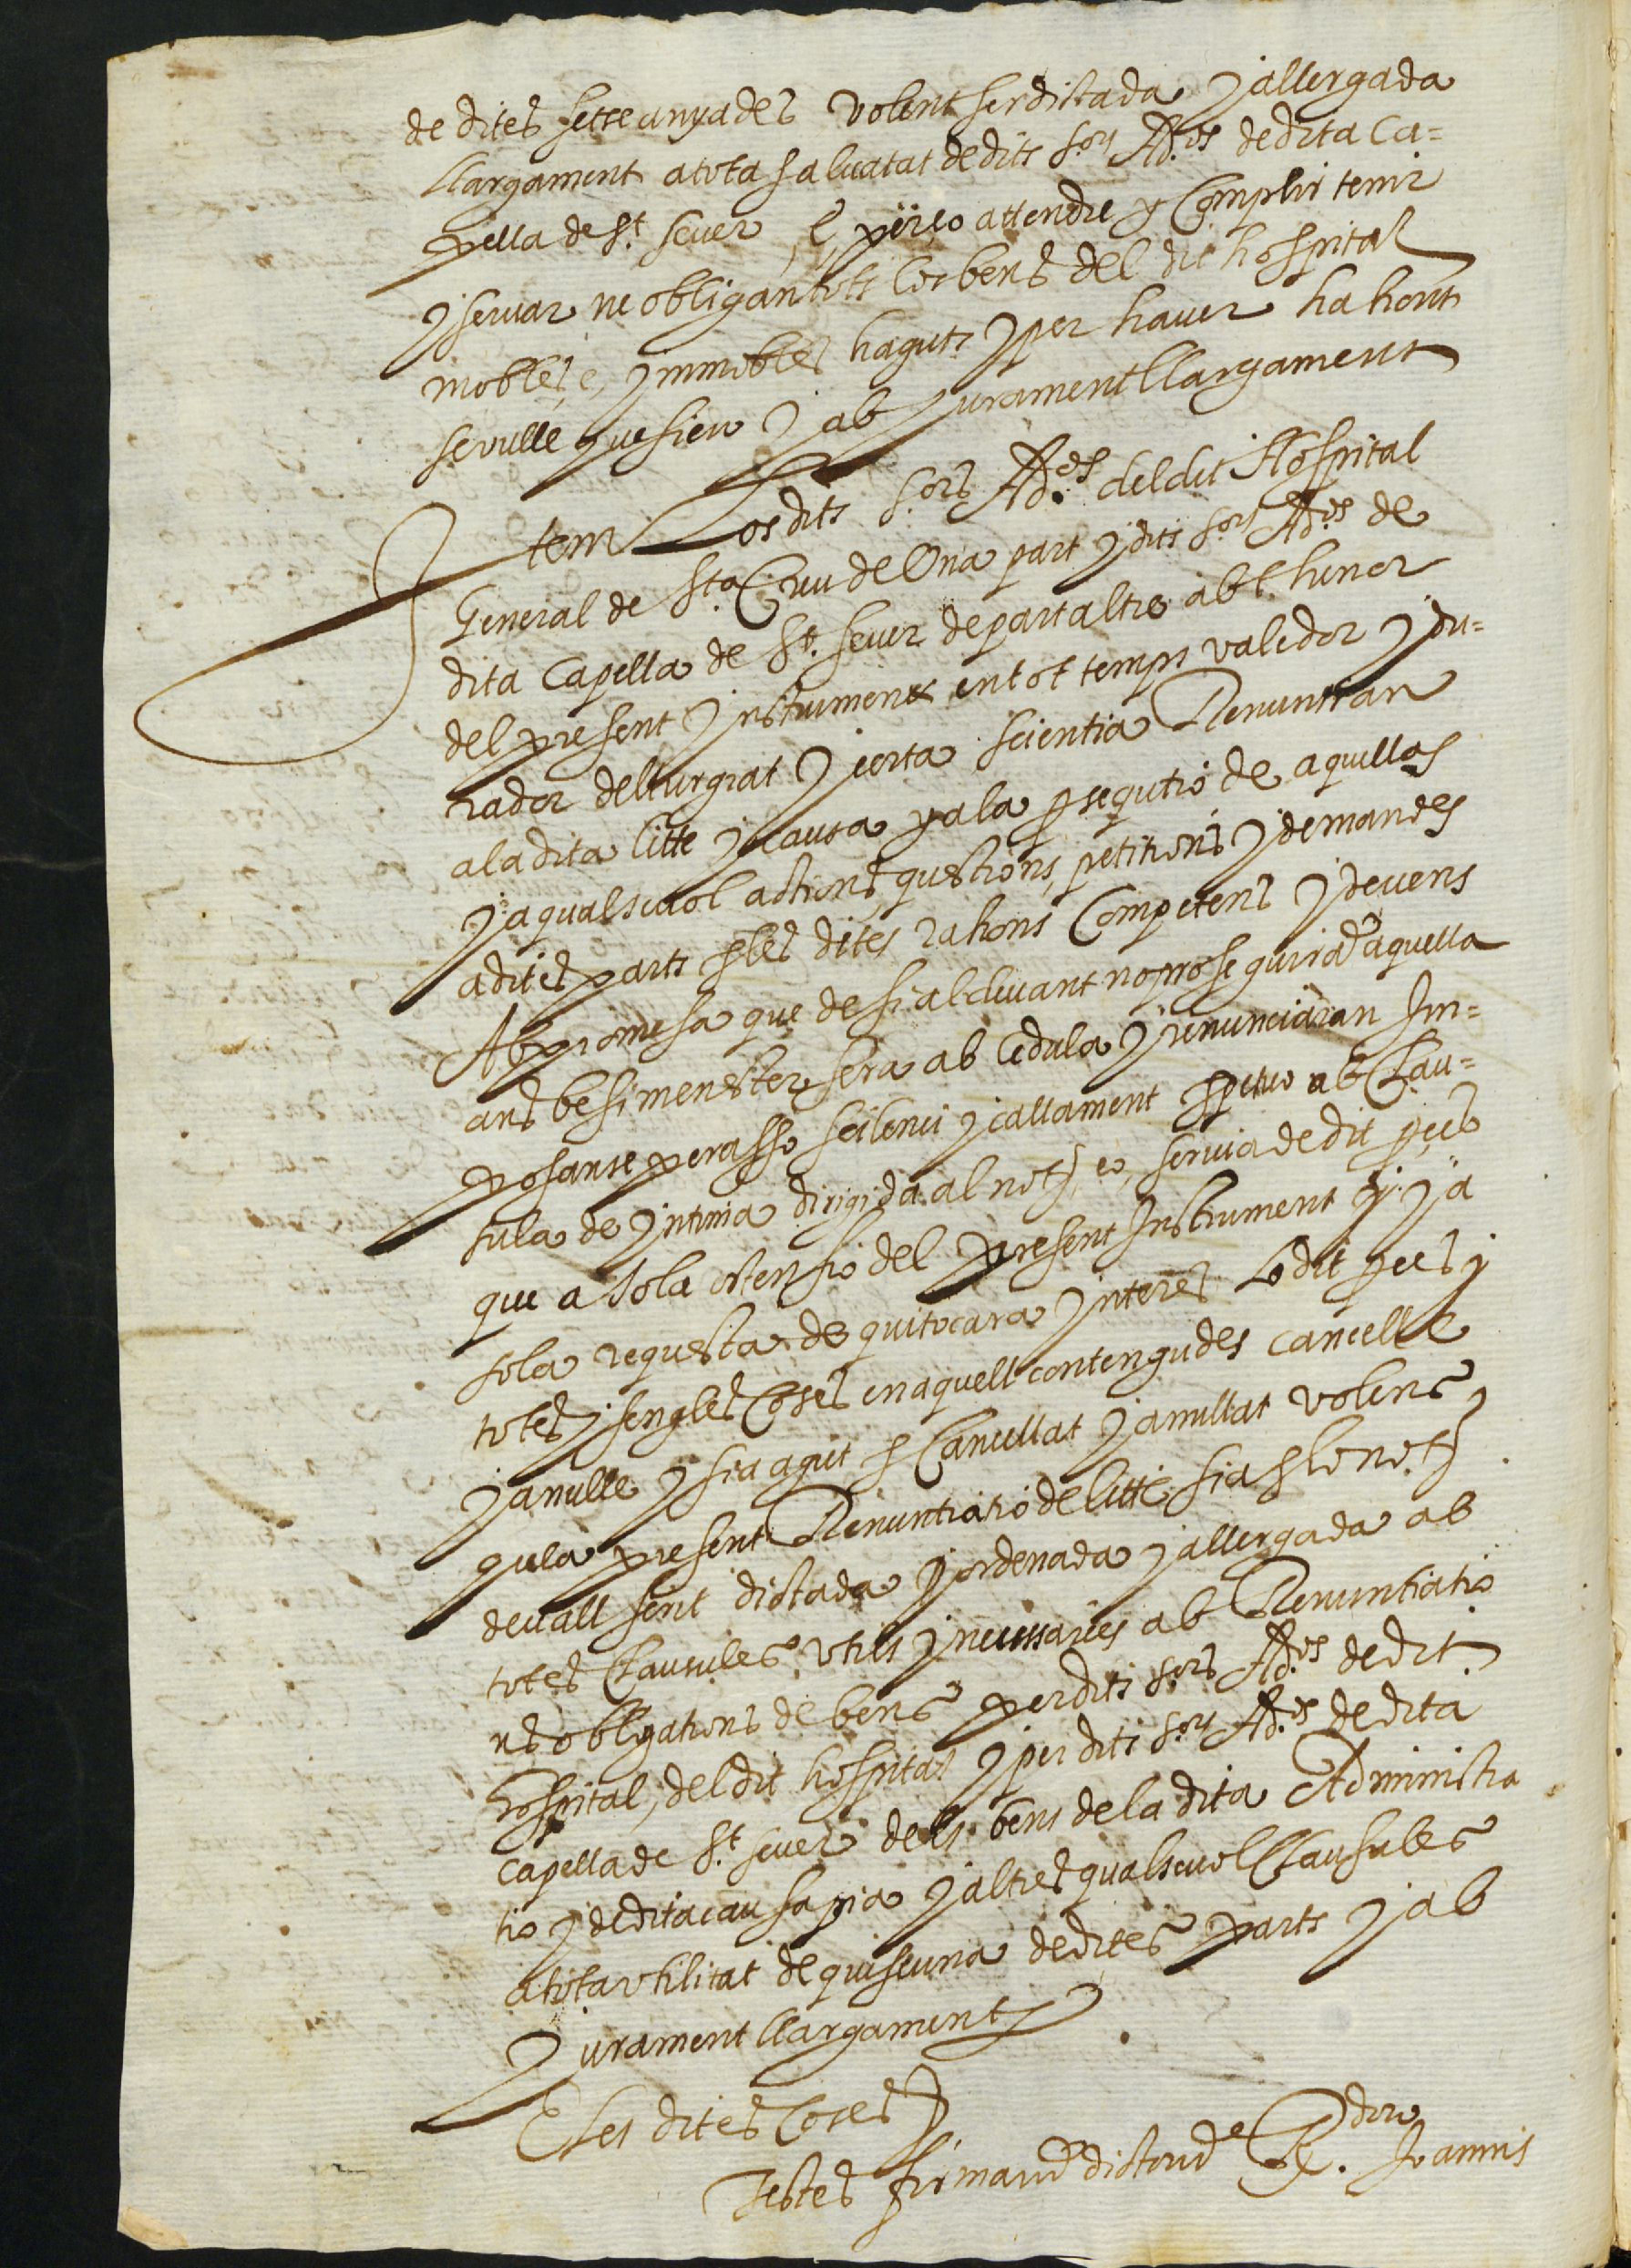 de dites setre anyades volent ser dictada y allergada
llargament a tota saluatat de dits S.ors Ad.rs de dita Ca=
pella de S.t Seuer, E, per ço attendre y Complir tenir
y seruar ne obligan tots los bens del dit hospital
mobles, e, ymmobles haguts y per hauer ha hont
se vulle que sien y ab jurament llargament
Item Los dits S.ors Ad.rs del dit Hospital
General de S.ta Creu de Una part y dits S.ors Ad.rs de
dita Capella de S.t Seuer de part altre ab t. henor
del present ynstrument en tot temps valedor y du=
rador de llur grat y certa scientia Renuntian
a la dita litte y causa y a la psequtió de aquellas
y a qualseuol actions, questions, petitions y demandes
a dites parts p les dites rahons Competens y deuens
Ab promesa que de si al deuant no proseguiran aquella
ans be si menester sera ab Cedula y renunciaran Im=
posantse per asso scilenci y callament ppetuo ab Clau=
sula de yntima dirigida al not), eo, scriua de dit pces
que a sola ostensio del present Instrument y. y a
sola requesta de qui tocara ynteres Lo dit pces y
totes y sengles Coses en aquell contengudes cancelle
y anulle y sia agut p Cancellat y anullat volens
que la present Renuntiatió de litte sia p lo not)
deuall scrit dictada y ordenada y allergada ab
totes Clausules vtils y necessaries ab Renuntiatio
ns obligations de bens per dits S.ors Ad.rs de dit
hospital, del dit hospital y per dits S.ors Ad.rs de dita
capella de S.t Seuer dels bens de la dita Administra
tio y de dita causa pia y altres qualseuol Clausules
a tota vtilitat de quiscuna de dites parts y ab
jurament llargament)
E les dites Coses)
Testes firmand dictorum Joannis